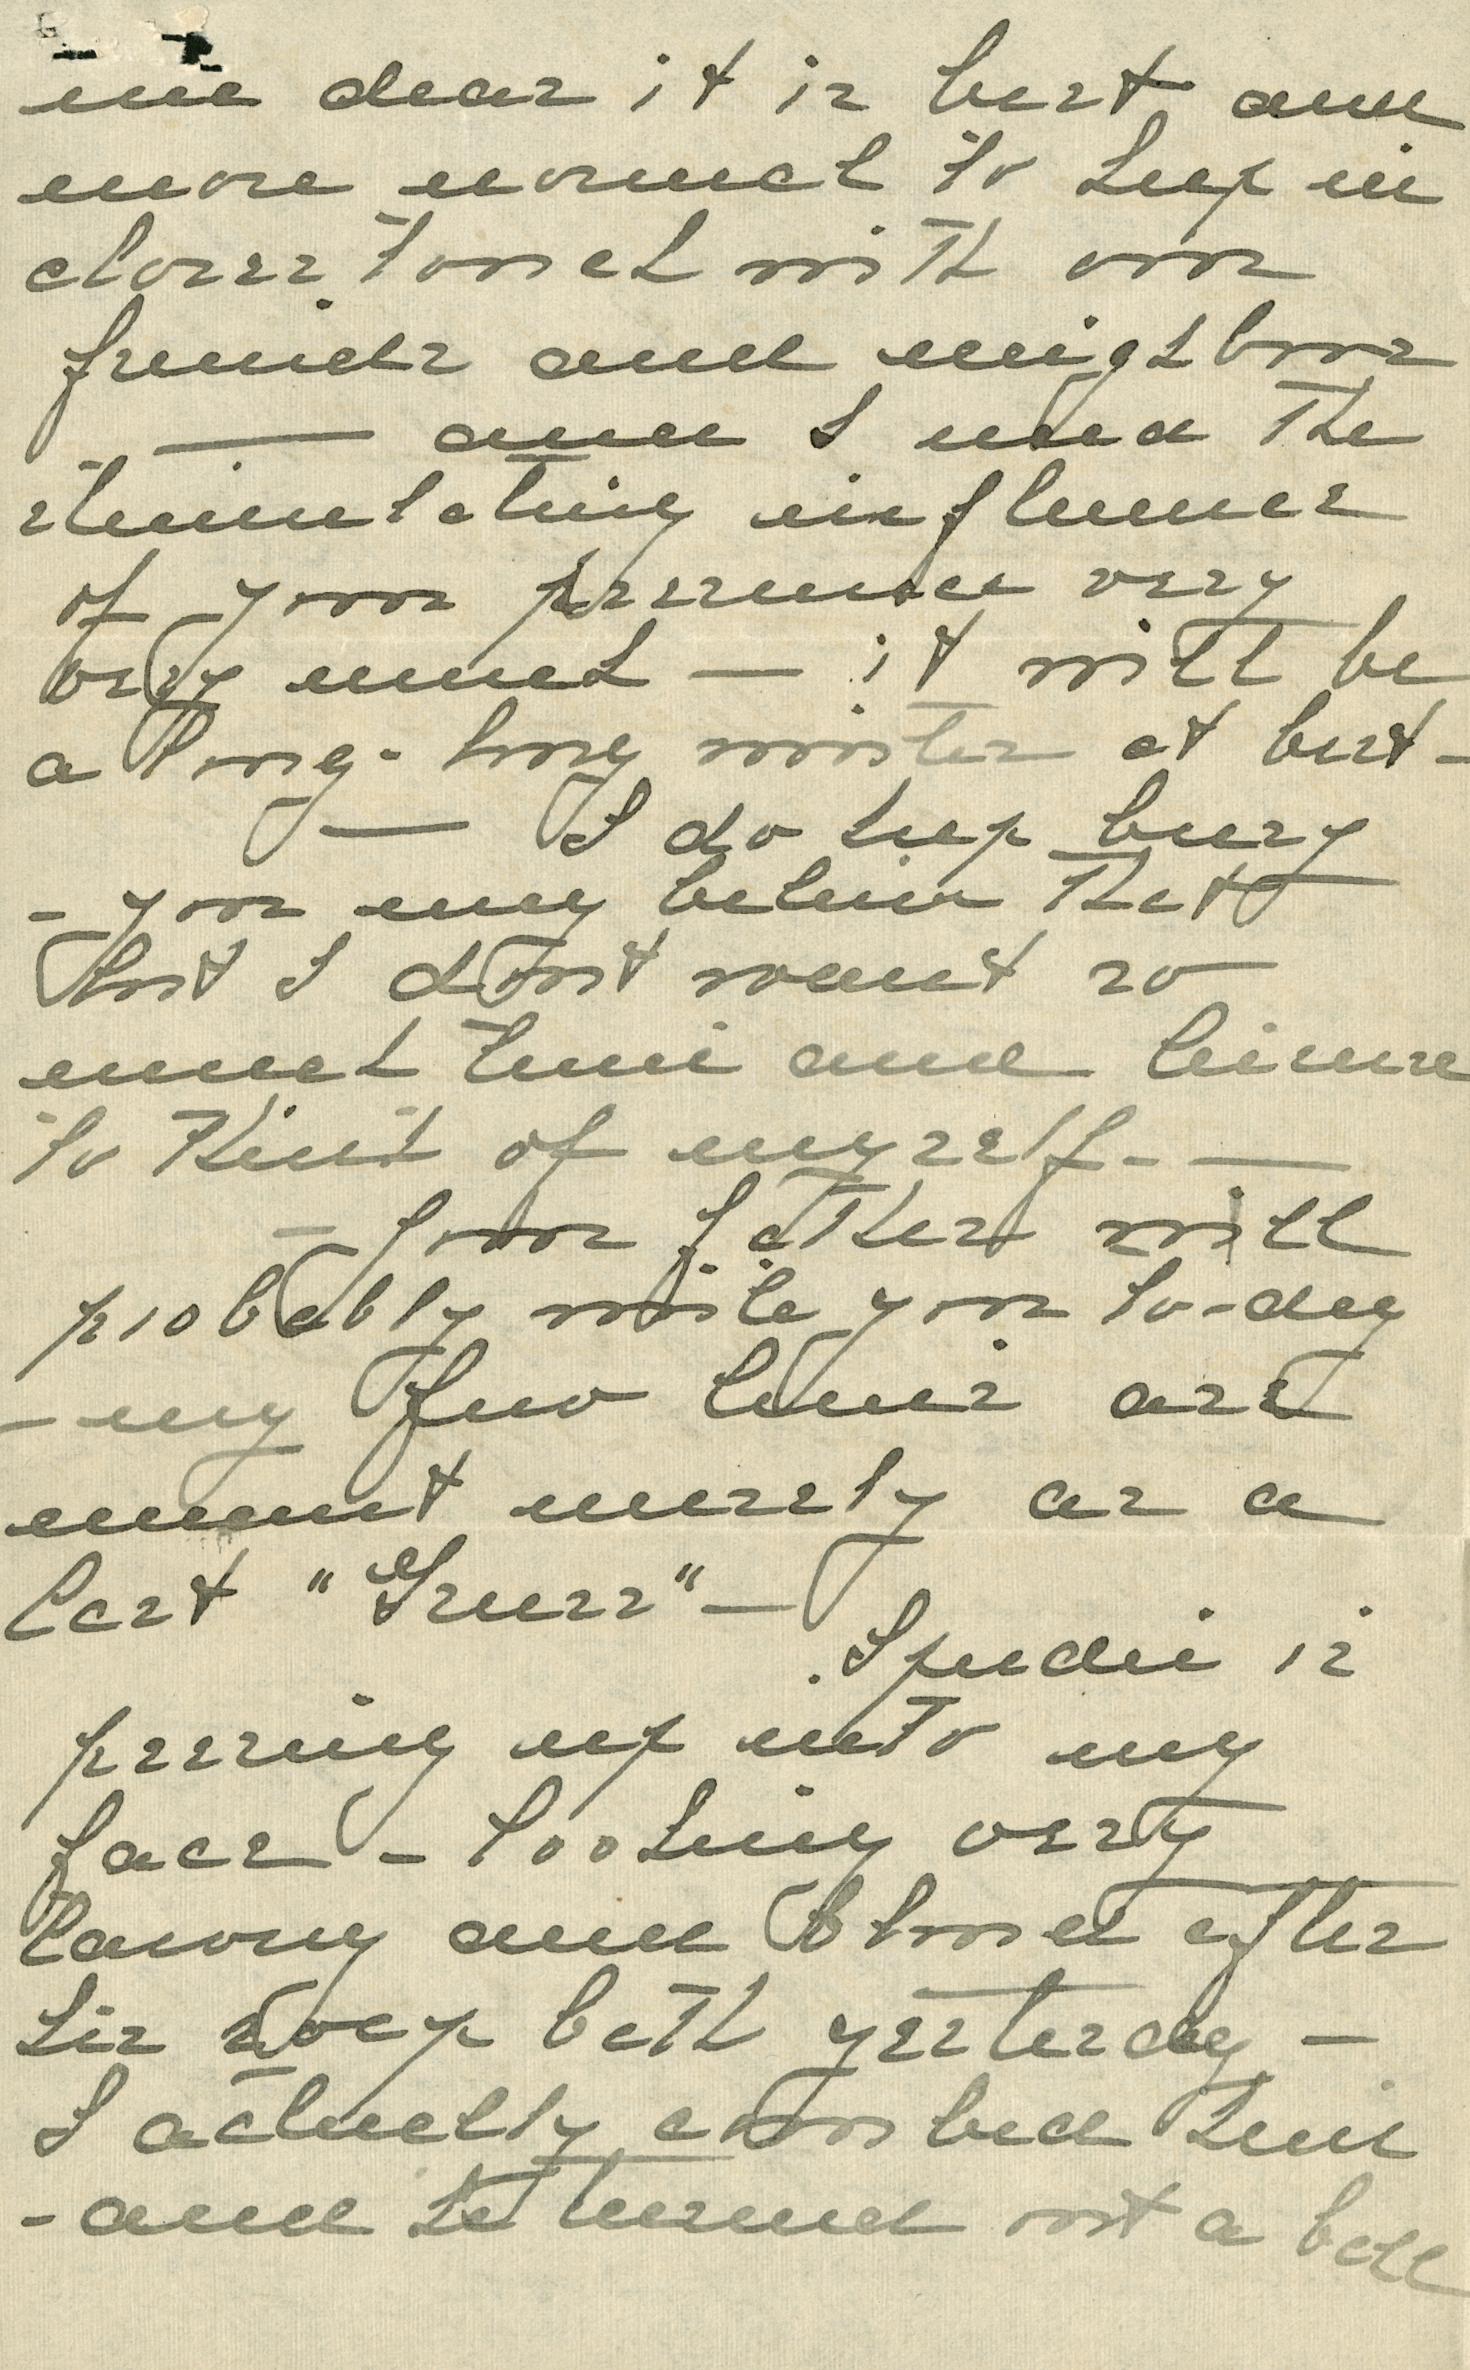 me dear it is best and
more normal to keep in
closer touch with our
friends and neighbors
— and I need the
stimulating influence
of your presence very
very much — it will be
a long - long winter at best -
— I do keep busy
- you may believe that
but I don't want so
much time and leisure
to think of myself - —
- Your father will
probably write you to-day
- my few lines are
meant merely as a
last "
Spudie is
peering up into my
face - looking very
and blond after
his soap bath yesterday -
I actually combed him
- and he turned out a